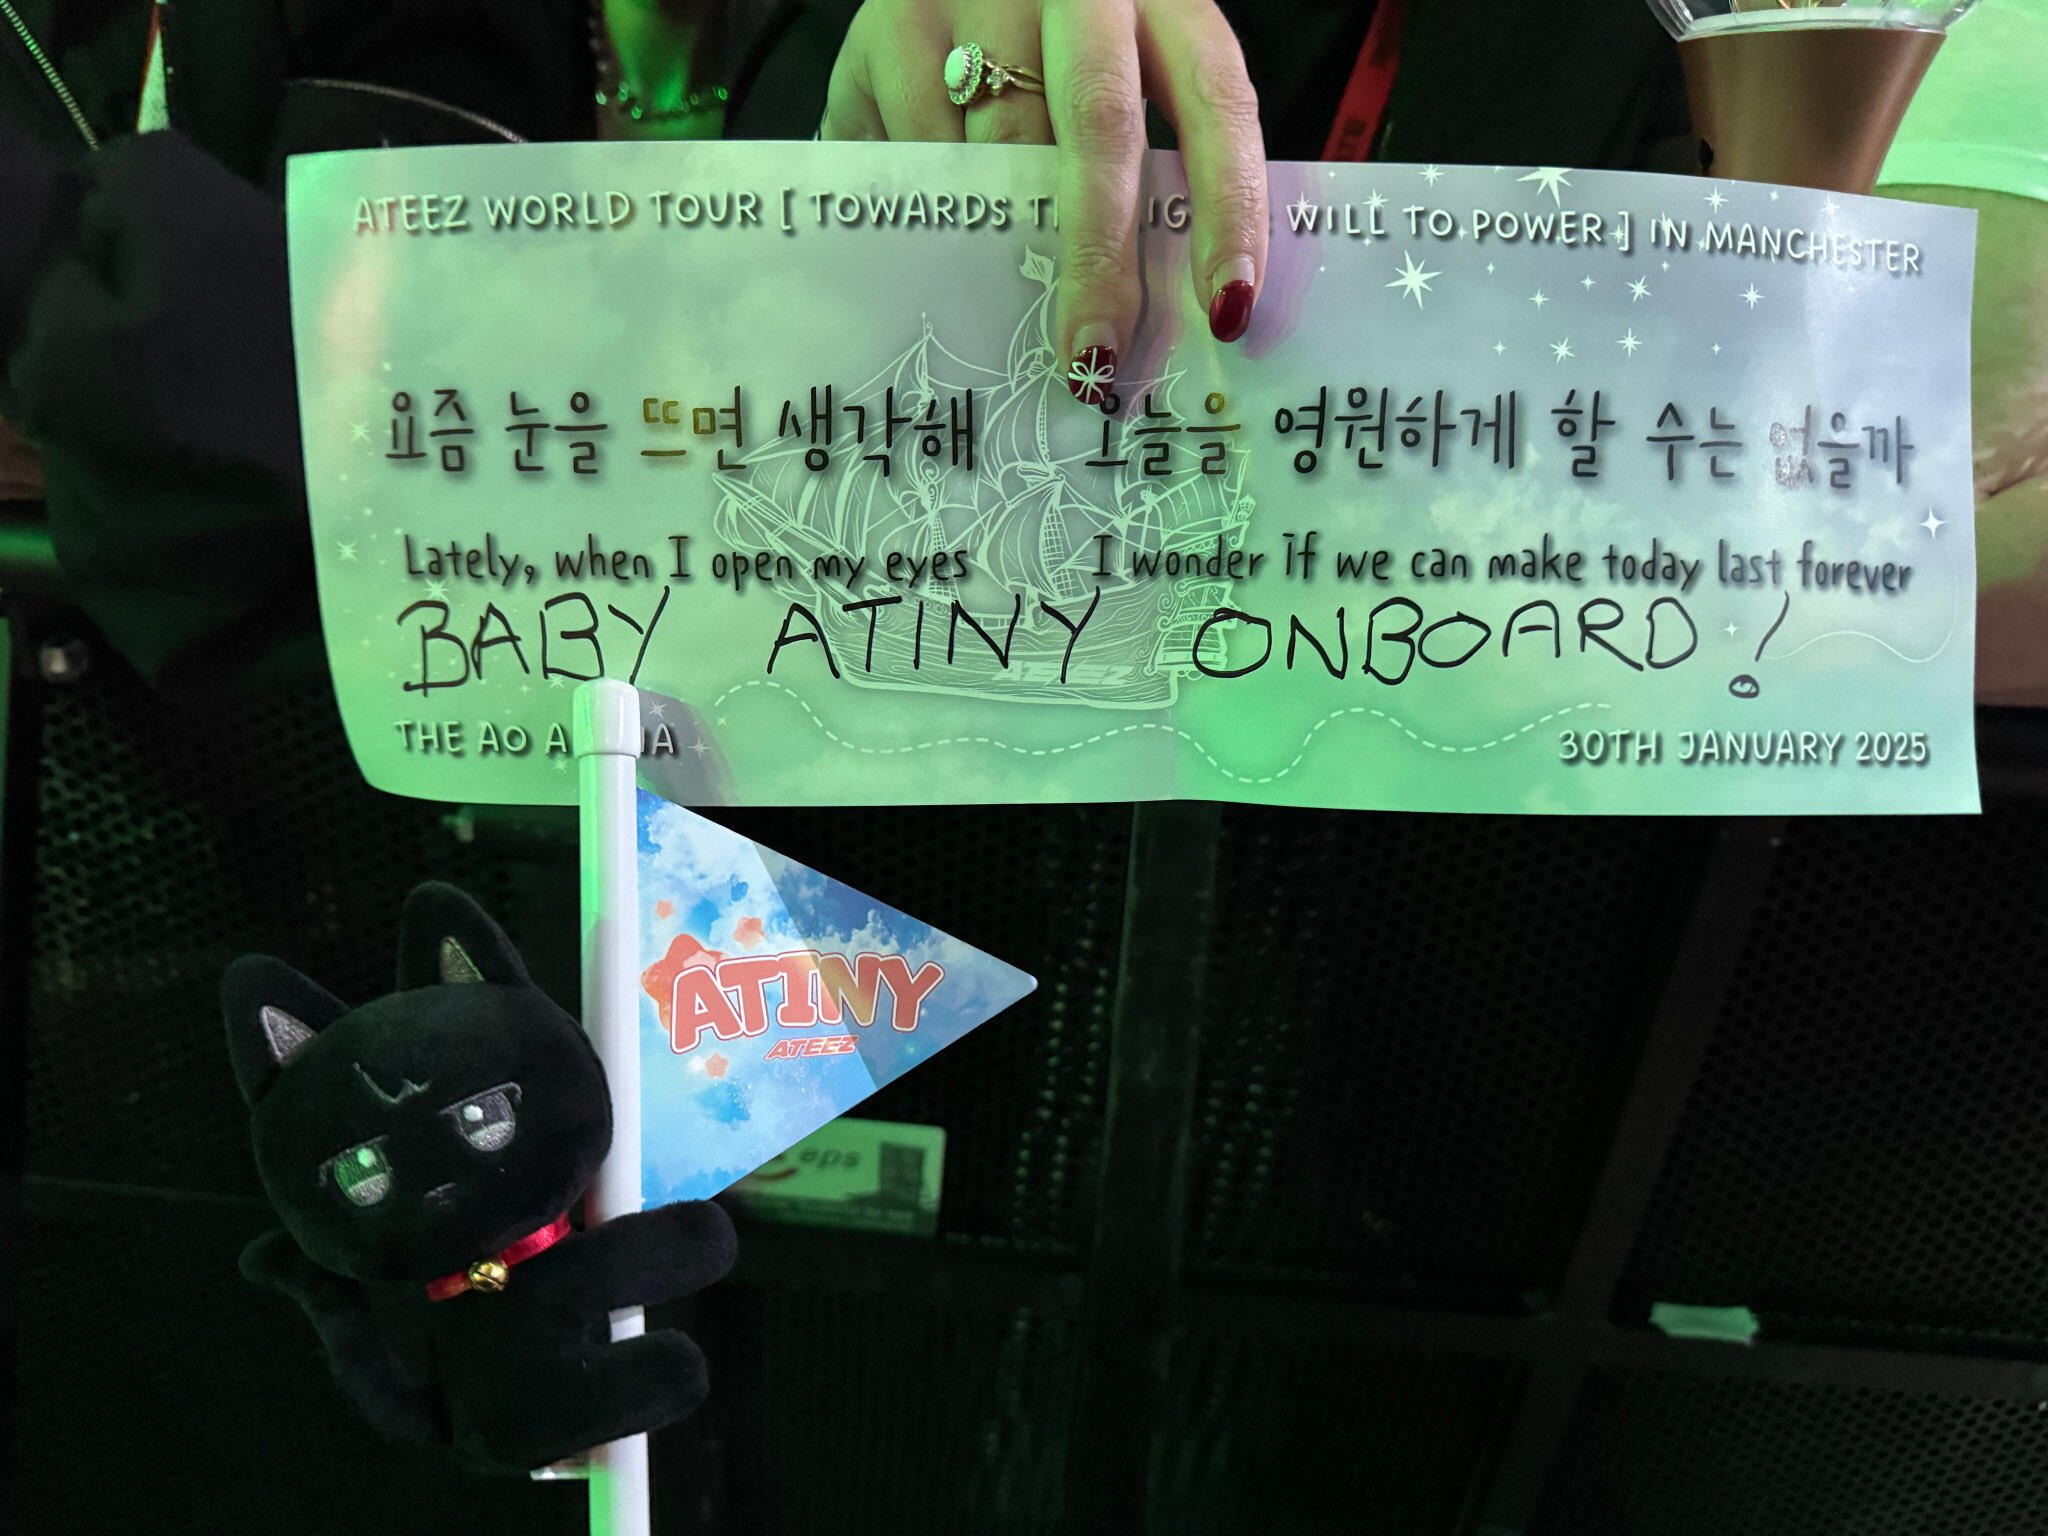 ATEEZ WORLD TOUR [ TOWARDS WILL TO POWER ] IN MANCHESTER
요즘 눈을 뜨면 생각해 오늘을 영원하게 할 수는 없을까
Lately, when I open my eyes I wonder if we can make today last forever
BABY ATINY ONBOARD!
ATEEZ
THE AO 30TH JANUARY 2025
ATINY
ATEEZ
aps